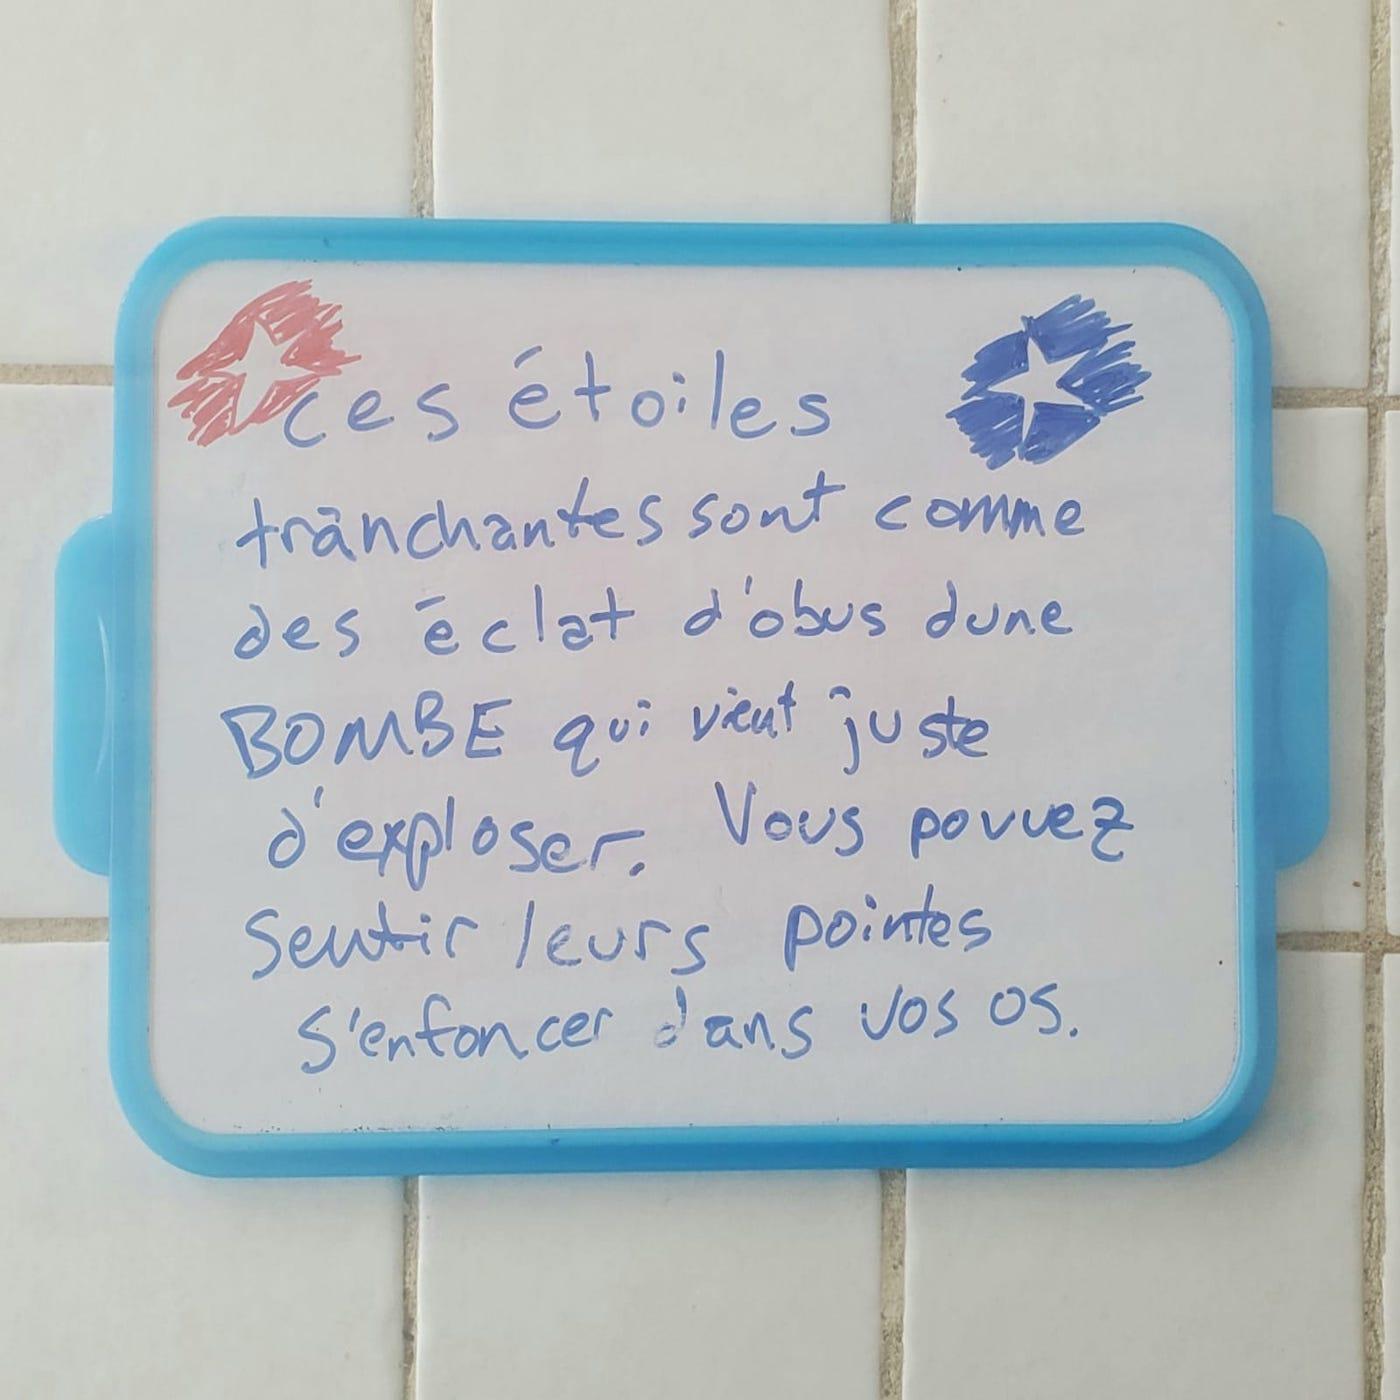 ces étoiles
trânchantes sont comme
des éclat d'obus dune
BOMBE qui vient juste
d'exploser. Vous pouvez
sentir leurs pointes
s'enfoncer dans vos os.